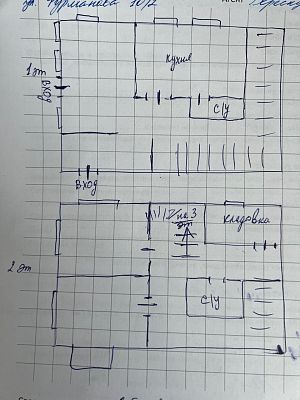 ул. Фурманова 30/2
кухня
1 эт
ВХОД
С/У
ВХОД
на 3
эт
кладовка
2 эт
С/У